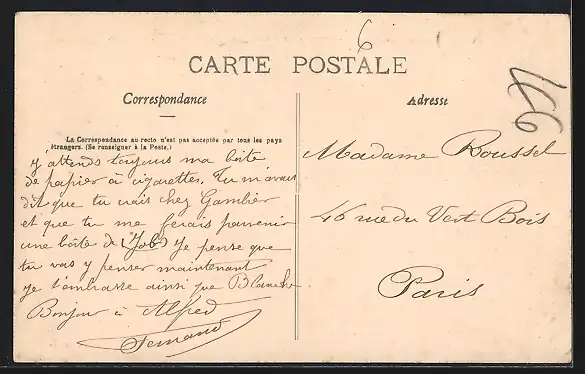 6
CARTE POSTALE
Correspondance
Adresse
La Correspondance au recto n'est pas acceptée par tous les pays
étrangers. (Se renseigner à la Poste.)
J'attends toujours ma boîte
de papier à cigarettes. Tu m'avais
dit que tu irais chez Gambier
et que tu me ferais parvenir
une boîte de (Job) Je pense que
tu vas y penser maintenant
Je t'embrasse ainsi que Blanche
Bonjour à Alfred
Fernand
Madame Roussel
46 rue du Vert Bois
Paris